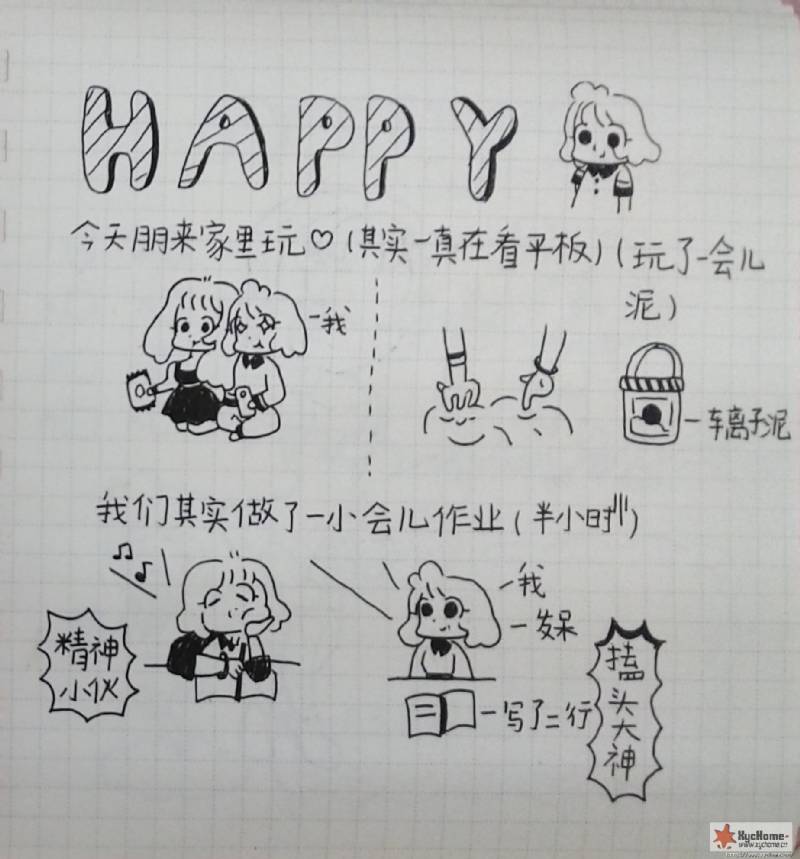 HAPPY
今天朋来家里玩♡(其实一真在看平板)(玩了一会儿
泥)
一我
一车离子泥
我们其实做了一小会儿作业(半小时)
一我
一发呆
精神
小伙
一写了二行
搕头大神
XycHome
www.xychome.cn